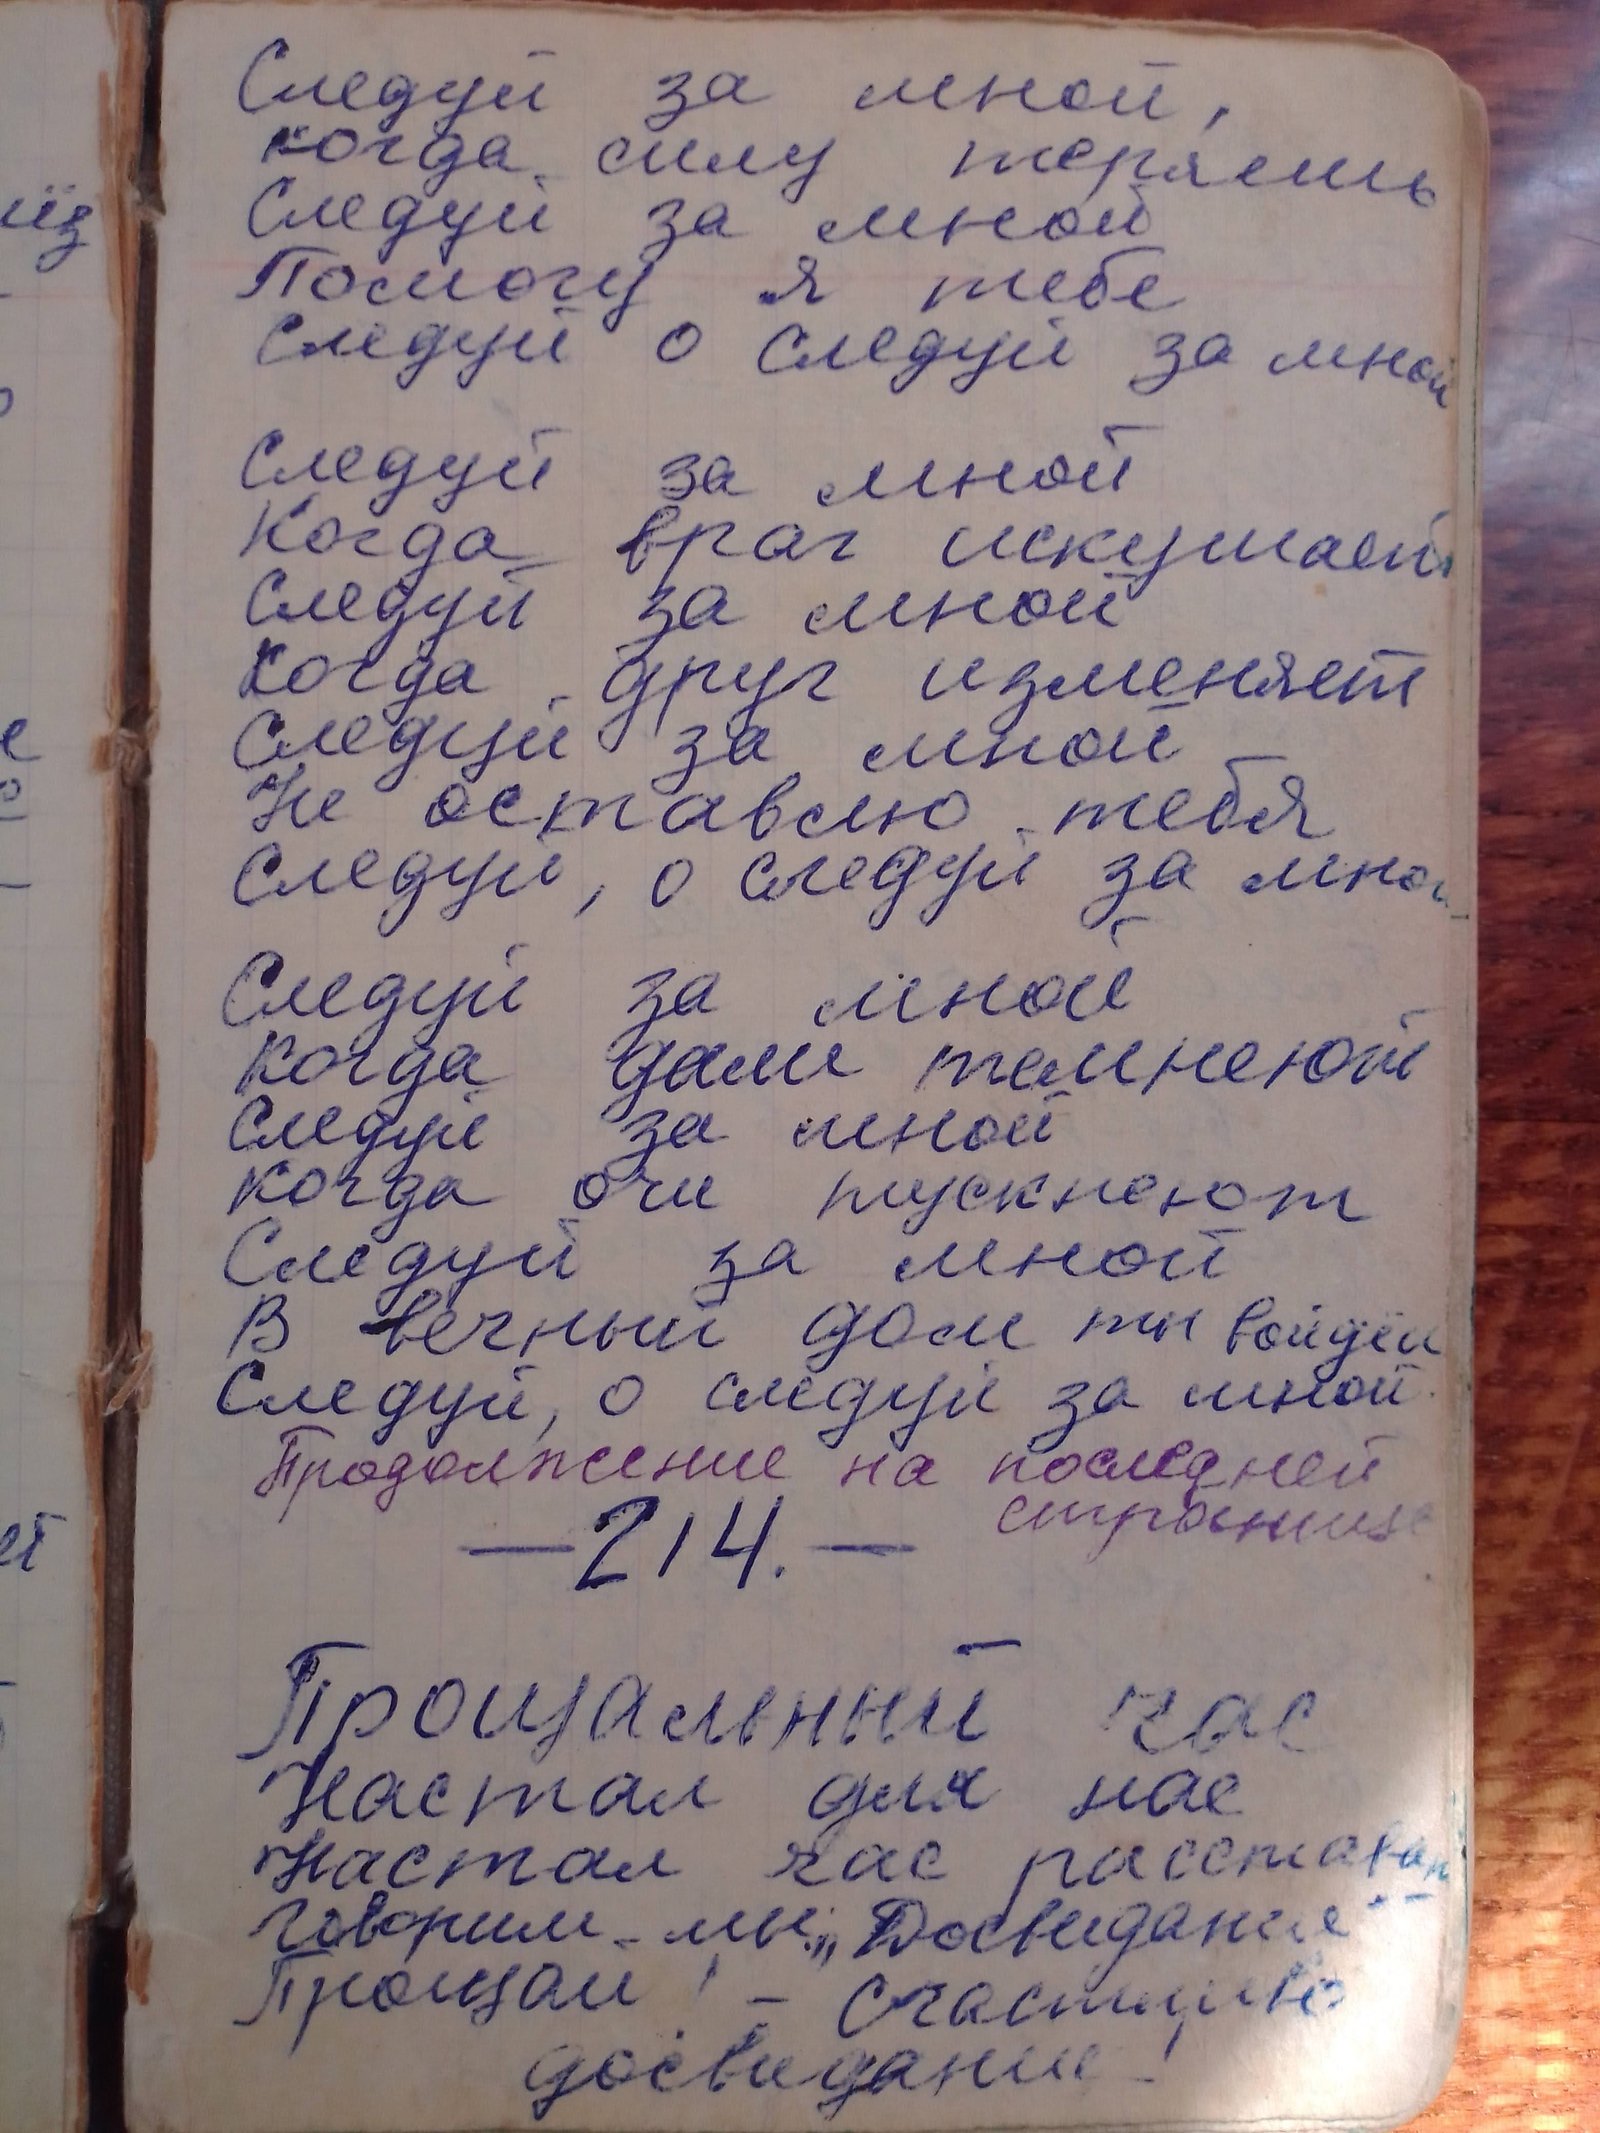 Следуй за мной,
когда силу теряешь
Следуй за мной
Помогу я тебе
Следуй о следуй за мной
Следуй за мной
Когда враг искушает
Следуй за мной
Когда друг изменяет
Следуй за мной
Не оставлю тебя
Следуй, о следуй за мной
Следуй за мной
Когда дали темнеют
Следуй за мной
Когда очи тускнеют
Следуй за мной
В вечный дом ты войдёш
Следуй, о следуй за мной.
Продолжение на последней
странице
— 214. —
Прощальный час
Настал для нас
Настал час расставан
Говорим мы „Досвидание"
Прощай! – счастливо
досвидание!